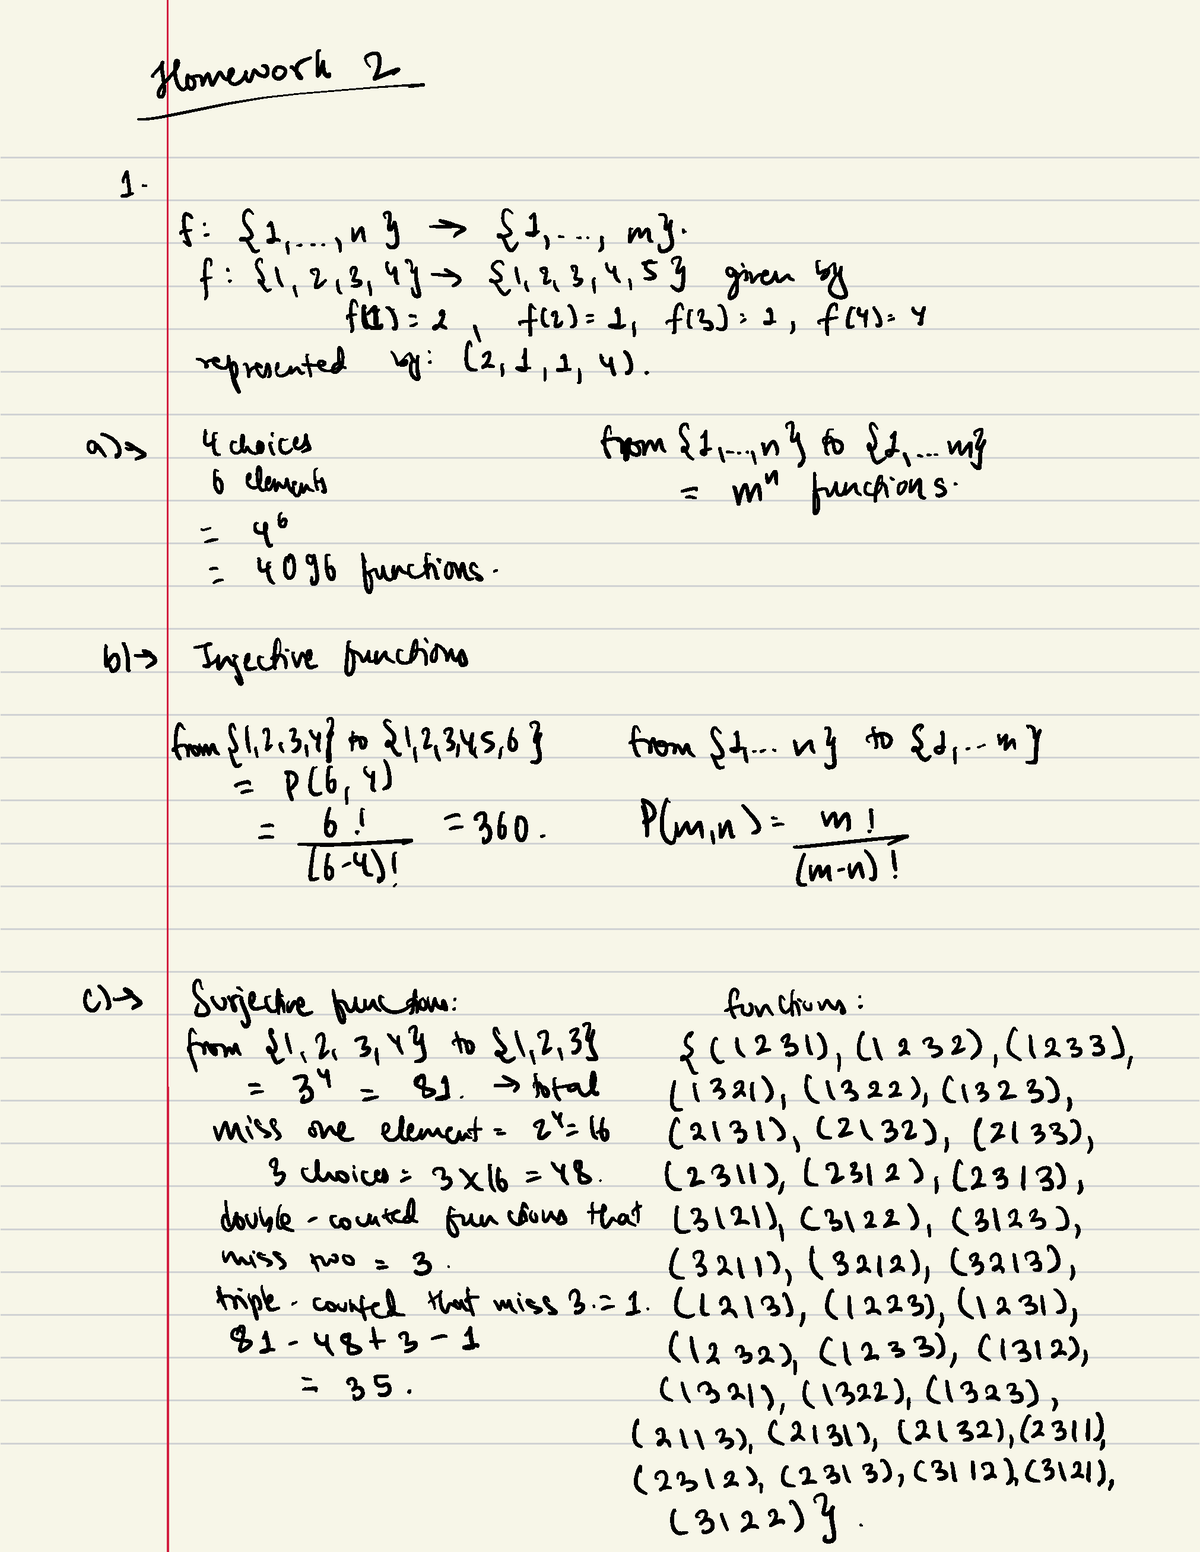 Homework 2
1.
f: {1,...,n} → {1,..., m}.
f: {1, 2, 3, 4} → {1, 2, 3, 4, 5} given by
f(1) = 2, f(2) = 1, f(3) = 1, f(4) = 4
represented by: (2, 1, 1, 4).
a)→ 4 choices
6 elements
= 4^6
= 4096 functions.
from {1,...,n} to {1,... m}
= m^n functions.
b)→ Injective functions
from {1,2,3,4} to {1,2,3,4,5,6}
= P(6, 4)
= 6! / (6-4)! = 360.
from {1,... n} to {1,.. m}
P(m,n) = m! / (m-n)!
c)→ Surjective functions:
from {1, 2, 3, 4} to {1,2,3}
= 3^4 = 81. → total
miss one element = 2^4 = 16
3 choices = 3 × 16 = 48.
double-counted functions that
miss two = 3.
triple-counted that miss 3. = 1.
81 - 48 + 3 - 1
= 35.
functions:
{(1231), (1232), (1233),
(1321), (1322), (1323),
(2131), (2132), (2133),
(2311), (2312), (2313),
(3121), (3122), (3123),
(3211), (3212), (3213),
(1213), (1223), (1231),
(1232), (1233), (1312),
(1321), (1322), (1323),
(2113), (2131), (2132), (2311),
(2312), (2313), (3112), (3121),
(3122)}.